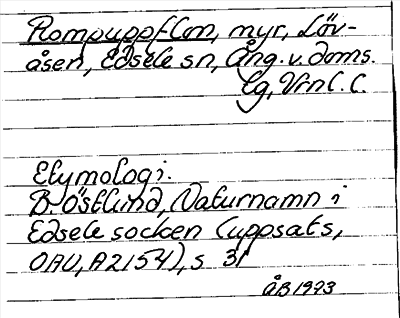 Rompuppflon, myr, Löv-
åsen, Edsele sn, Ång. v. doms.
lg, Vrnl. C.
Etymologi.
B. Östlund, Naturnamn i
Edsele socken (uppsats,
OAU, A2154), s 31
ÅB 1973